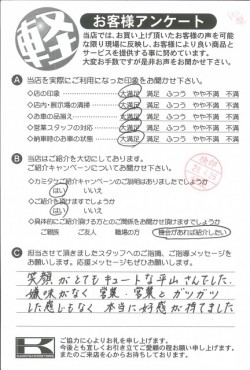 軽
お客様アンケート
当店では、お買い上げ頂いたお客様の声を可能
な限り現場に反映し、お客様により良い商品と
サービスを提供する事に努めています。
大変お手数ですが是非お声をお聞かせ下さい。
A 当店を実際にご利用になった印象をお聞かせ下さい。
◇店の印象 大満足 満足 ふつう やや不満 不満
◇店内・展示場の清掃 大満足 満足 ふつう やや不満 不満
◇お車の品揃え 大満足 満足 ふつう やや不満 不満
◇営業スタッフの対応 大満足 満足 ふつう やや不満 不満
◇納車時のお車の状態 大満足 満足 ふつう やや不満 不満
B 当店はご紹介を大切にしております。
ご紹介キャンペーンについてお聞かせ下さい。
◇カミタケご紹介キャンペーンのご説明はありましたでしょうか
はい いいえ
◇ご紹介を頂けますでしょうか
はい いいえ
◇具体的にご紹介頂ける方とのご関係をお聞かせ頂けますでしょうか
ご親族 ご友人 職場の方 機会があれば紹介したい
C 担当させて頂きましたスタッフへのご指摘、ご指導メッセージを
お願いします。応援メッセージもぜひお願いします。
笑顔がとてもキュートな平山さんでした。
嫌味がなく営業、営業とガツガツ
した感じもなく本当に好感が持てました
K
ご協力に心よりお礼を申し上げます。
今後とも宜しくお引き立てご愛顧の程お願い申し上げます。
またのご来店を心からお待ちしております。